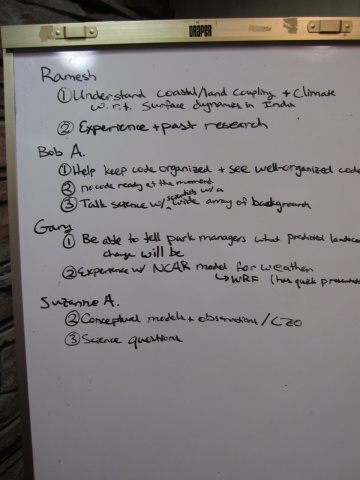 DRAPER
Ramesh
① Understand coastal/land coupling + climate
w.r.t. surface dynamics in India
② Experience + past research
Bob A.
① Help keep code organized + see well-organized code
② no code ready at the moment
③ Talk science w/ scientists w/ a wide array of backgrounds
Gary
① Be able to tell park managers what predicted landsc
change will be
② Experience w/ NCAR model for weather
↳ WRF (has quick presentat
Suzanne A.
② Conceptual models + observations / CZO
③ Science questions